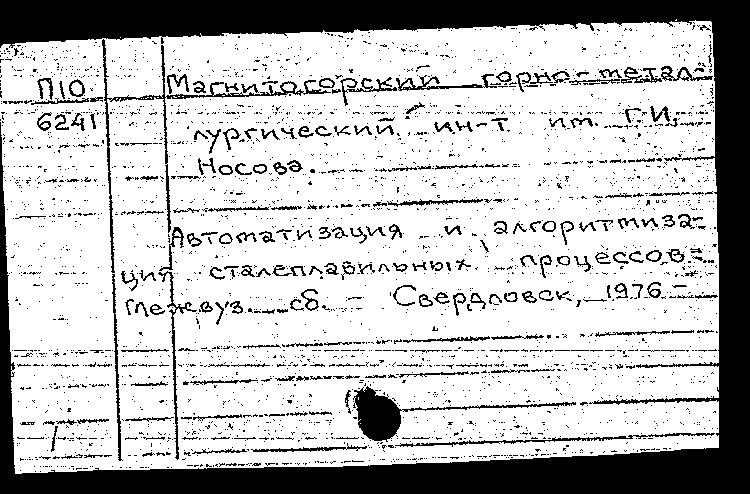 П10 Магнитогорский горно-метал-
6241 лургический ин-т им. Г.И.
Носова.
Автоматизация и алгоритмиза-
ция сталеплавильных процессов-
Межвуз. сб. - Свердловск, 1976 -